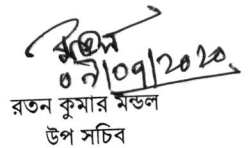 ০৭/০৭/২০২০
রতন কুমার মন্ডল
উপ সচিব